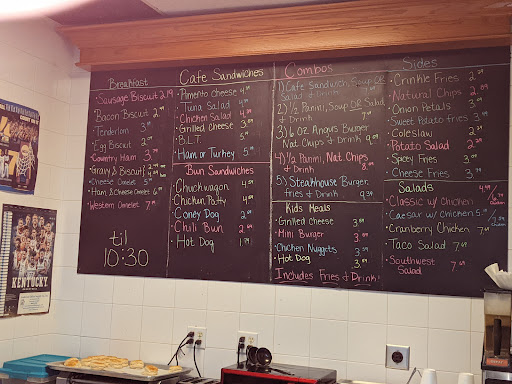 Breakfast
Sausage Biscuit 2.19
Bacon Biscuit 2
Tenderloin 3
Egg Biscuit 2
Country Ham 3
Gravy & Biscuit
Cheese Omelet 5
Ham & Cheese Omelet 6
Western Omelet 7
til
10:30
Cafe Sandwiches
Pimento Cheese 4
Tuna Salad 4
Chicken Salad 4
Grilled Cheese 3
B.L.T. 5
Ham or Turkey 5
Bun Sandwiches
Chuckwagon 4
Chicken Patty 4
Coney Dog 2
Chili Bun 2
Hot Dog 1.99
Combos
1) Cafe Sandwich, Soup OR
Salad & Drink
2) 1/2 Panini, Soup OR Salad
& Drink 7
3) 6 oz Angus Burger
Nat. Chips & Drink 9
4) 1/2 Panini, Nat Chips
& Drink 8
5) Steakhouse Burger,
fries & Drink 9
Kids Meals
Grilled Cheese 3
Mini Burger 3
Chicken Nuggets 3
Hot Dog 3
Includes Fries & Drink
Sides
Crinkle Fries 2
Natural Chips 2
Onion Petals 3
Sweet Potato Fries 3
Coleslaw 2
Potato Salad 2
Spicy Fries 3
Cheese Fries 3
Salads
Classic w/ Chicken
Caesar w/ Chicken
Cranberry Chicken 7
Taco Salad 7
Southwest
Salad 7
KENTUCKY